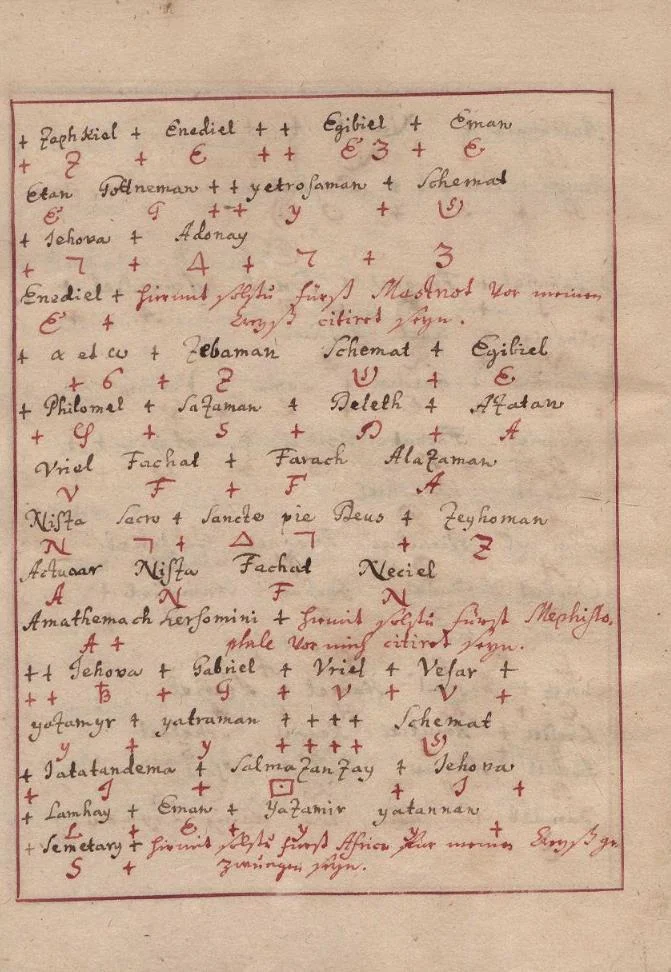 + Zephkiel + Enediel + + Egibiel + Eman
+ Z + E + + E 3 + E
Etan Gottneman + + yetrosaman + Schemat
E G + + y + S
+ Jehova + Adonay
+ 7 + 4 + 7 + 3
Enediel + hiermit solstu fürst Mastnot vor meinen
E + Kreyß citiret seyn.
+ α et ω + Zebaman Schemat + Egibiel
+ 6 + Z S + E
+ Philomel + Sazaman + Deleth + Azatan
+ + S + D + A
Vriel Fachat + Farach Alazaman
V F + F A
Nista Sacro + Sancte pie Deus + Zeyhoman
N 7 + Δ 7 + Z
Actuaar Nista Fachat Neciel
A N F N
Amathemach hersomini + hiermit solstu fürst Mephisto.
A + phile vor mich citiret seyn.
+ + Jehova + Gabriel + Vriel + Vesar +
+ + + G + V + V +
yazamyr + yatraman + + + + Schemat
y + y + + + + S
+ Jatatandema + Salmazanzay + Jehova +
+ J + + J +
+ Lamhay + Eman + yazamir yatannan
L + E + y +
+ Semetary + hiermit solstu fürst meinen Kreyß ge
S + zwungen seyn.